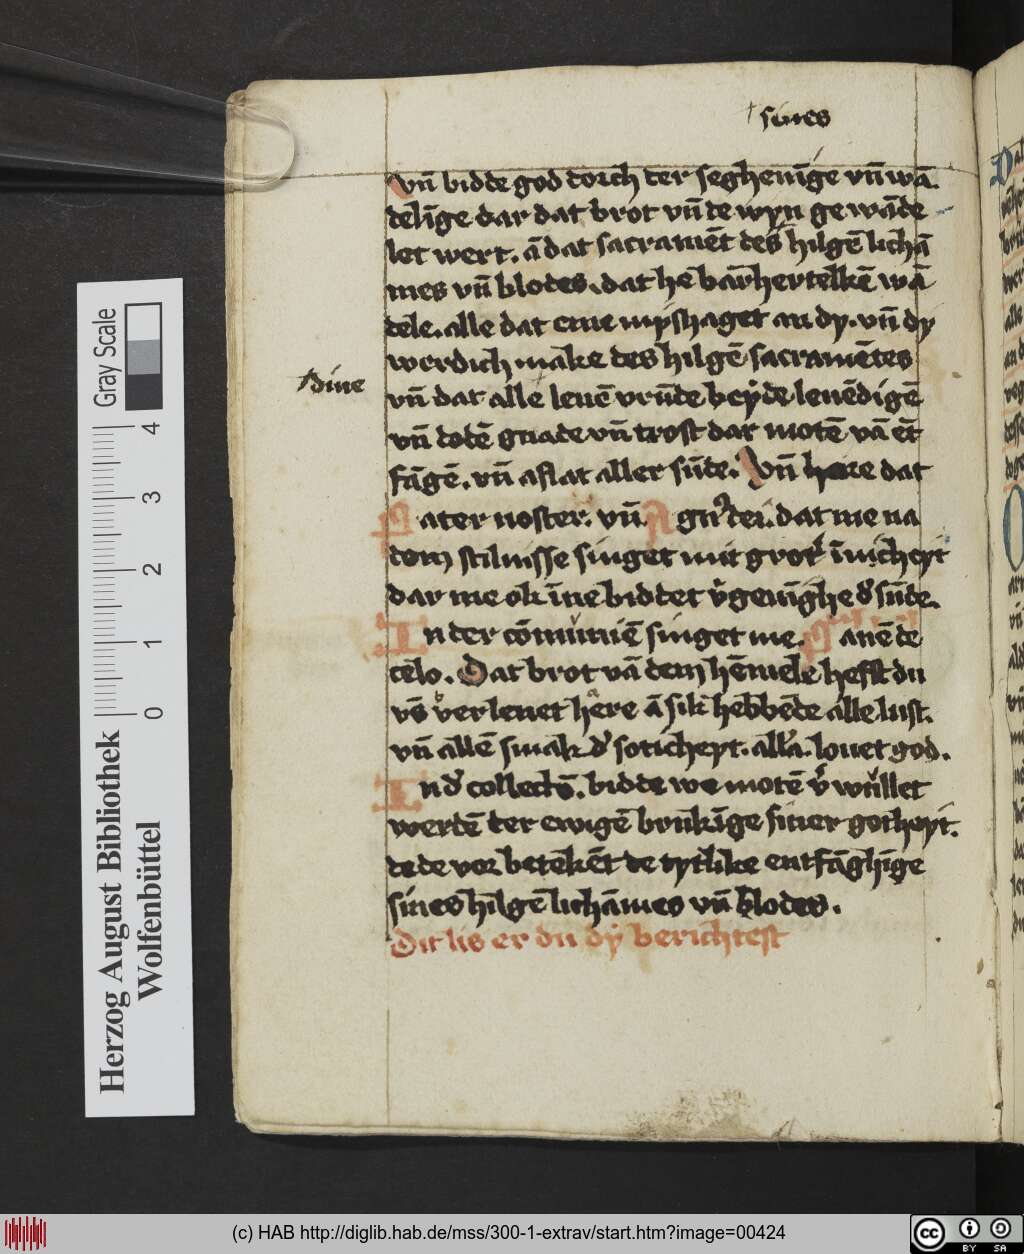 † sines
vn̄ bidde god dorch der seghenīge vn̄ wā
delīge dar dat brot vn̄ de wyn gewāde
let wert. ā dat sacramēt des hilgē lichā
mes vn̄ blodes. dat he barͫhertelkē wā
dele. alle dat eme myshaget an dy. vn̄ dy
werdich make des hilgē sacramētes
†dine
vn̄ dat alle leuē vrūde beẏde leuēdigē
vn̄ dodē gnade vn̄ trost dar motē vā ēt
fāgē. vn̄ aflat aller sūde. Vn̄ here dat
Pater noster. vn̄ Agnꝰ dei. dat me na
dem stilnisse singet mit grotͬ īnicheyt
dar me ok īne biddet vͬgeuīghe dͬ sūde.
In der cōmuniē singet me. Panē de
celo. Dat brot vā dem hēmele hefft du
vs̄ vorlenet here ā sik hebbēde alle lust.
vn̄ allē smak dͬ soticheyt. allͬa. louet god.
In dͬ collectē. bidde we motē vͬwllet
werdē der ewigē brukīge siner gotheyt.
dede vor betekēt de tytlike entfāghīge
sines hilgē lichāmes vn̄ blodes.
Dit lis er du dẏ berichtest
Gray Scale
0 1 2 3 4
Herzog August Bibliothek
Wolfenbüttel
(c) HAB http://diglib.hab.de/mss/300-1-extrav/start.htm?image=00424
cc BY SA